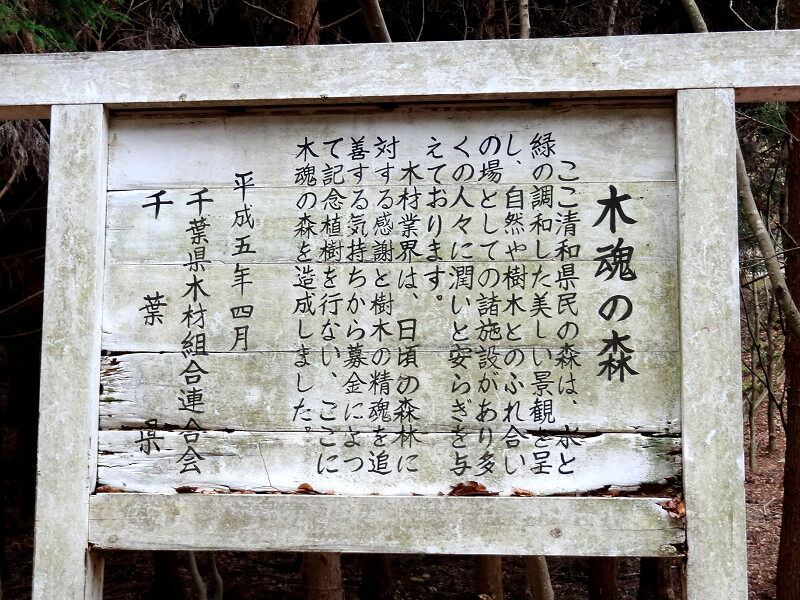 木魂の森
ここ清和県民の森は、水と
緑の調和した美しい景観を呈
し、自然や樹木とのふれ合い
の場としての諸施設があり多
くの人々に潤いと安らぎを与
えております。
木材業界は、日頃の森林に
対する感謝と樹木の精魂を追
善する気持ちから募金によっ
て記念植樹を行ない、ここに
木魂の森を造成しました。
平成五年四月
千葉県木材組合連合会
千葉県